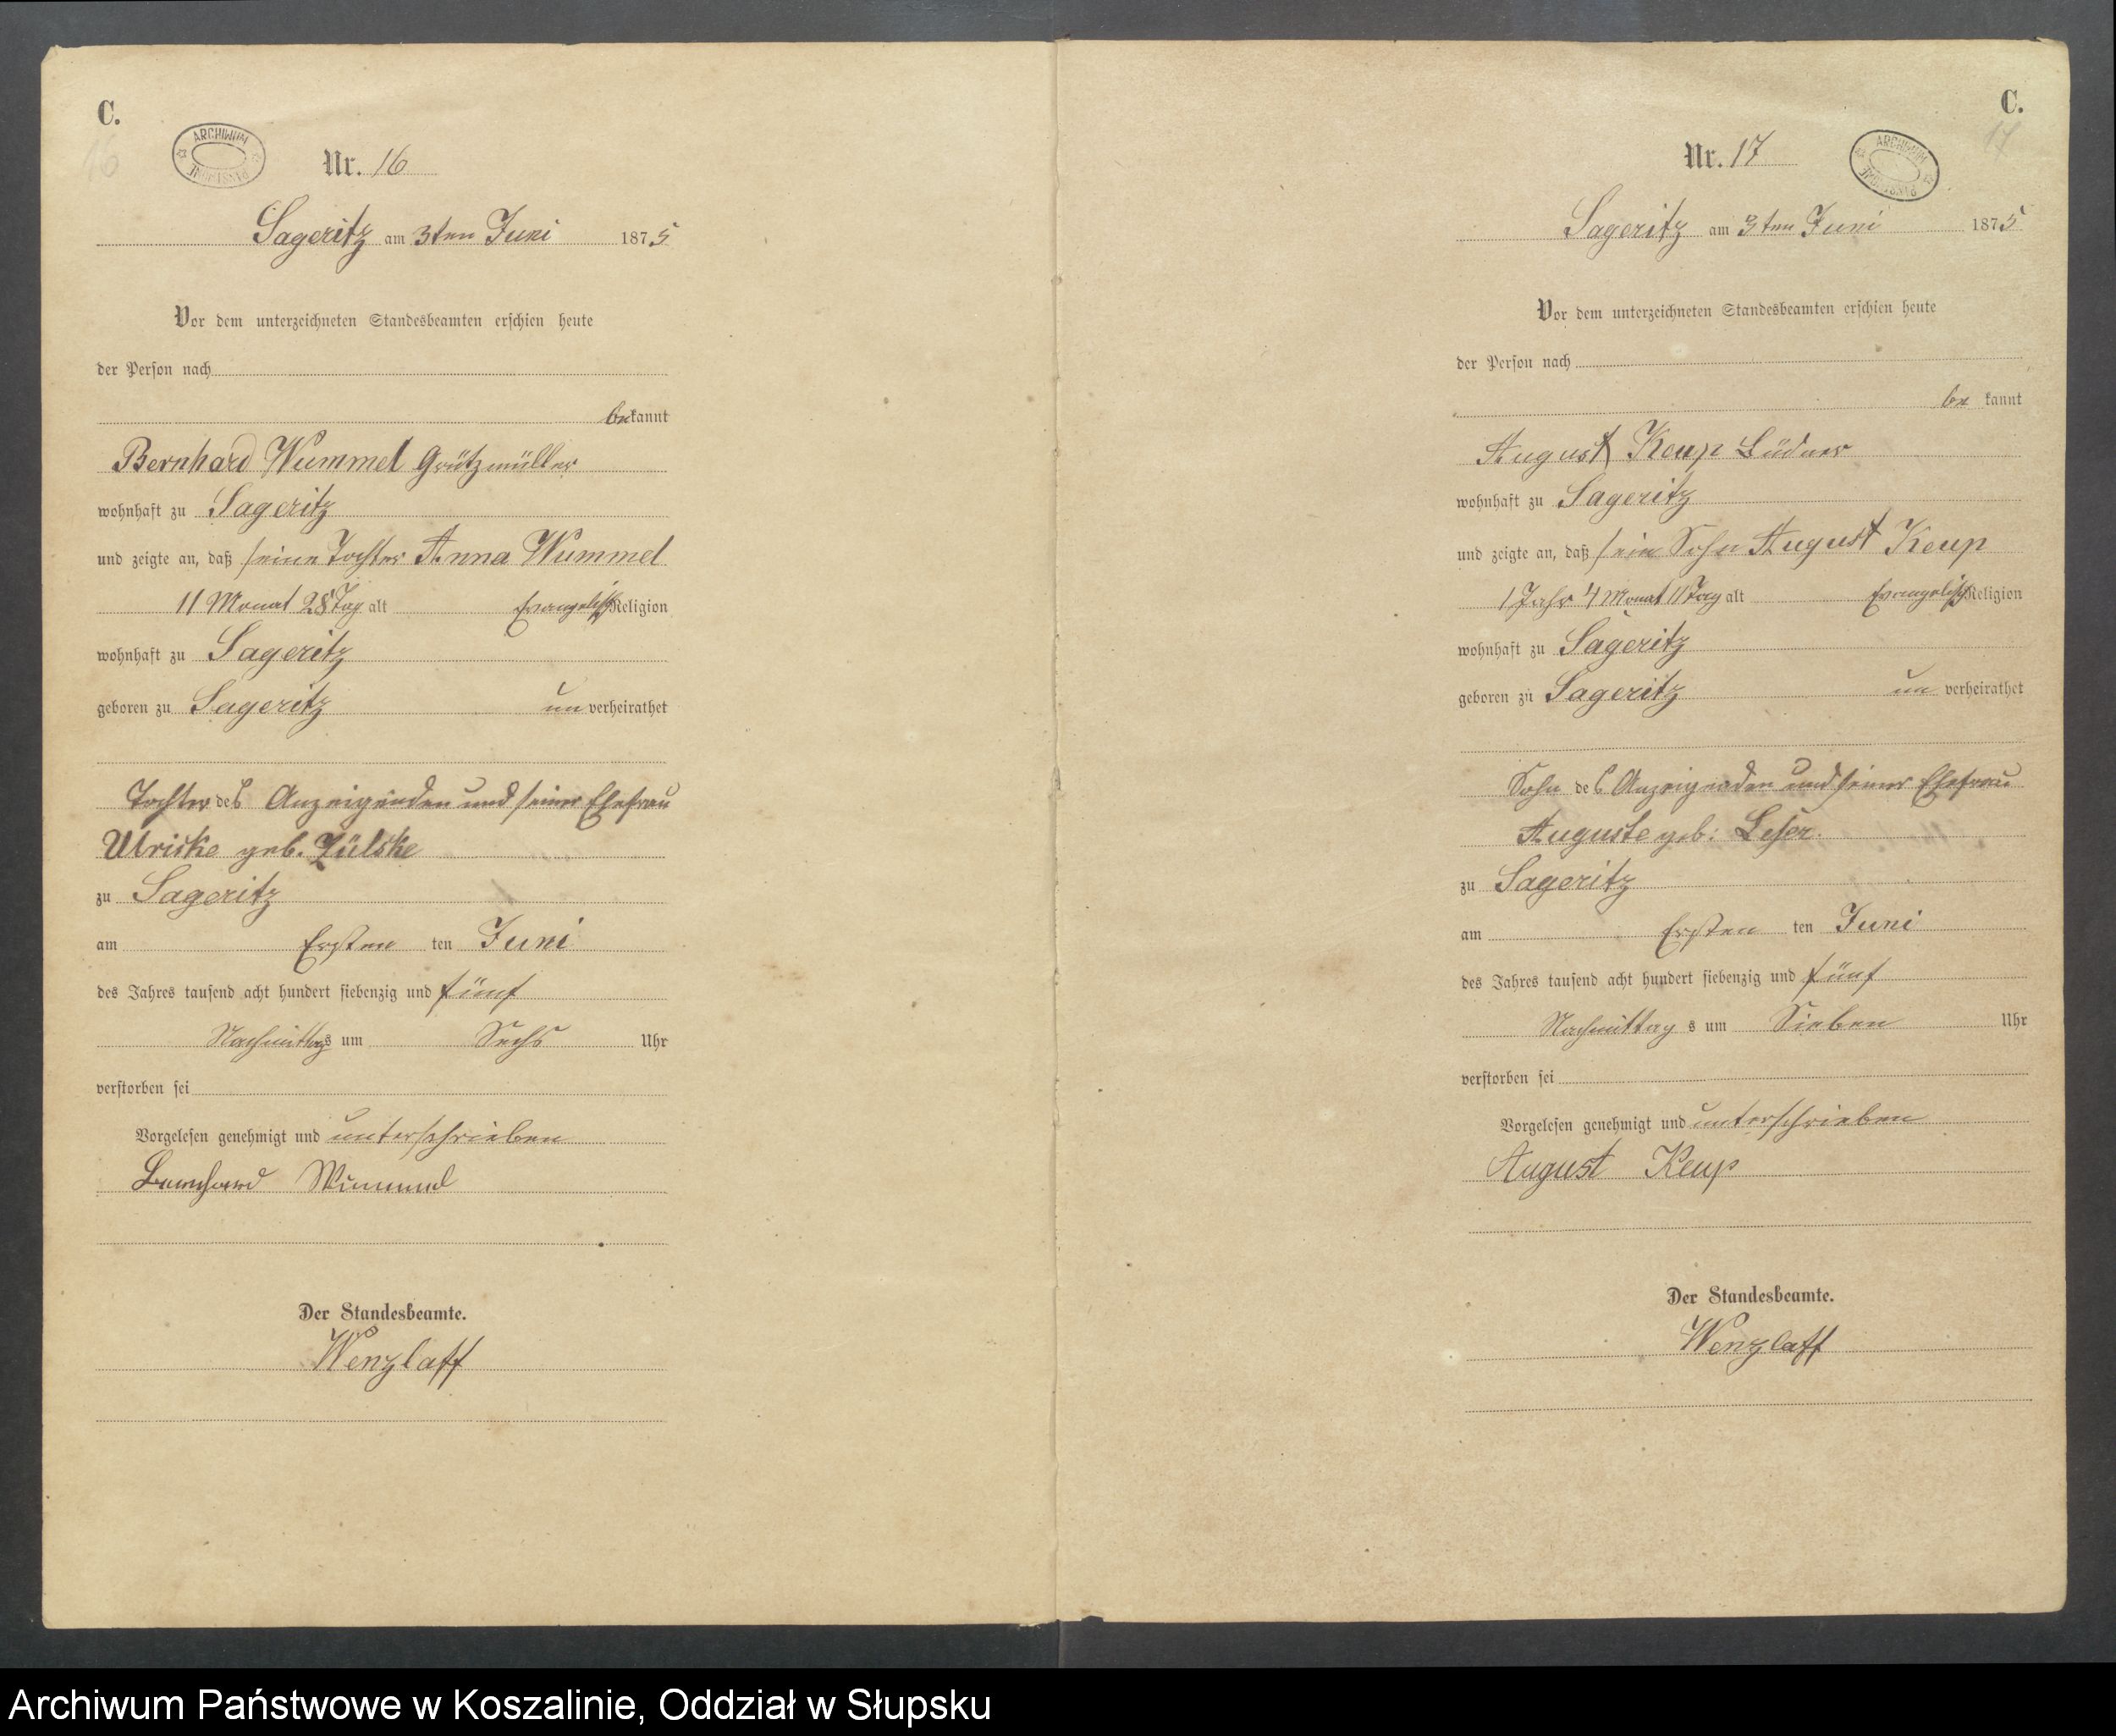 C.
16
ARCHIWUM PAŃSTWOWE
Nr. 16
Sageritz am 3ten Juni 1875
Vor dem unterzeichneten Standesbeamten erschien heute
der Person nach
bekannt
Bernhard Wummel Grützmüller
wohnhaft zu Sageritz
und zeigte an, daß seine Tochter Anna Wummel
11 Monat 28 Tag alt Evangelisch Religion
wohnhaft zu Sageritz
geboren zu Sageritz un verheirathet
Tochter des Anzeigenden und seiner Ehefrau
Ulriske geb. Zülske
zu Sageritz
am Ersten ten Juni
des Jahres tausend acht hundert siebenzig und fünf
Nachmittags um Sechs Uhr
verstorben sei
Vorgelesen genehmigt und unterschrieben
Bernhard Wummel
Der Standesbeamte.
Wenzlaff
C.
17
ARCHIWUM PAŃSTWOWE
Nr. 17
Sageritz am 3ten Juni 1875
Vor dem unterzeichneten Standesbeamten erschien heute
der Person nach
be kannt
August Keup Büdner
wohnhaft zu Sageritz
und zeigte an, daß sein Sohn August Keup
1 Jahr 4 Monat 11 Tag alt Evangelisch Religion
wohnhaft zu Sageritz
geboren zu Sageritz un verheirathet
Sohn des Anzeigenden und seiner Ehefrau
Auguste geb: Leser
zu Sageritz
am Ersten ten Juni
des Jahres tausend acht hundert siebenzig und fünf
Nachmittag s um Sieben Uhr
verstorben sei
Vorgelesen genehmigt und unterschrieben
August Keup
Der Standesbeamte.
Wenzlaff
Archiwum Państwowe w Koszalinie, Oddział w Słupsku